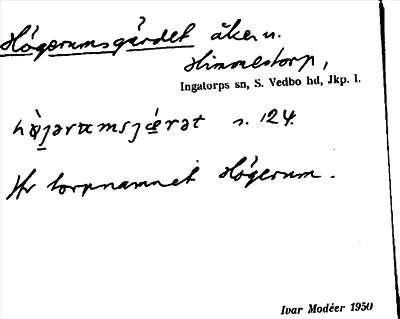 Högerumsgärdet åker n.
Himmestorp,
Ingatorps sn, S. Vedbo hd, Jkp. l.
hø̀jərumsjæ̀rət s. 124.
Av torpnamnet Högerum.
Ivar Modéer 1950